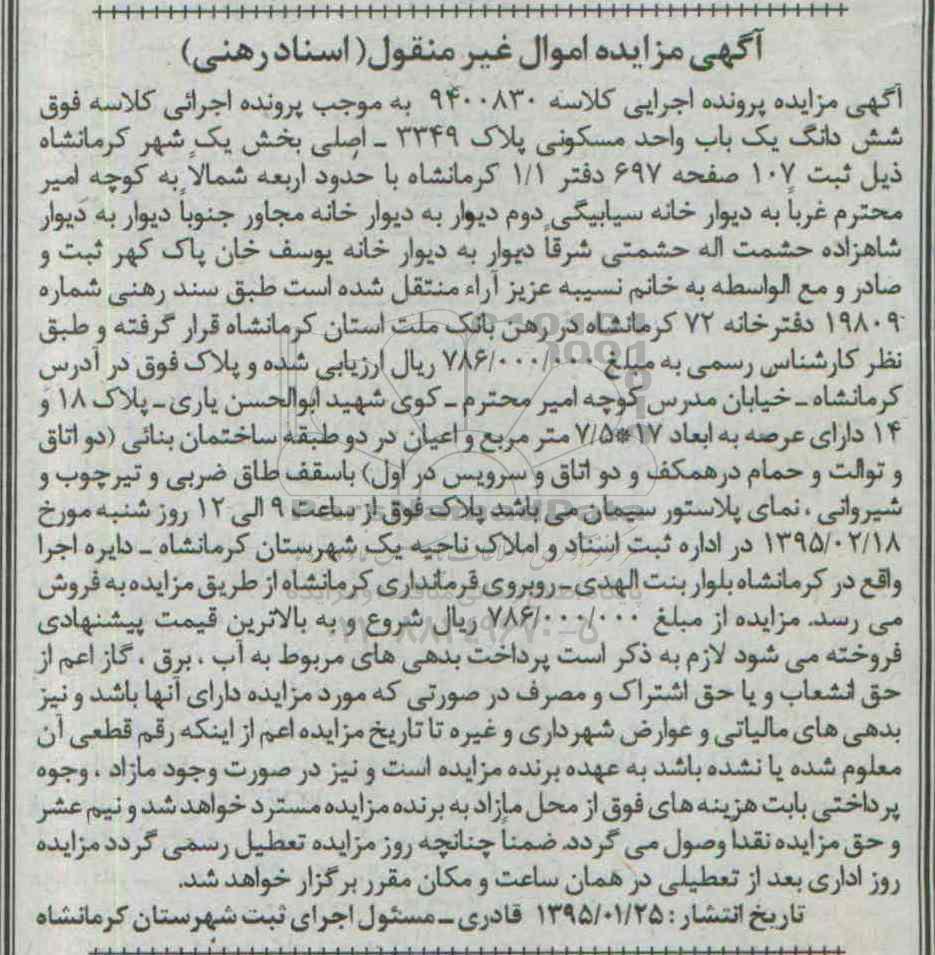 آگهی مزایده اموال غیر منقول (اسناد رهنی)
آگهی مزایده پرونده اجرایی کلاسه ۹۴۰۰۸۳۰ به موجب پرونده اجرائی کلاسه فوق
شش دانگ یک باب واحد مسکونی پلاک ۳۳۴۹ ـ اصلی بخش یک شهر کرمانشاه
ذیل ثبت ۱۰۷ صفحه ۶۹۷ دفتر ۱/۱ کرمانشاه با حدود اربعه شمالاً به کوچه امیر
محترم غرباً به دیوار خانه سیابیگی دوم دیوار به دیوار خانه مجاور جنوباً دیوار به دیوار
شاهزاده حشمت اله حشمتی شرقاً دیوار به دیوار خانه یوسف خان پاک کهر ثبت و
صادر و مع الواسطه به خانم نسیبه عزیز آراء منتقل شده است طبق سند رهنی شماره
۱۹۸۰۹ دفترخانه ۷۲ کرمانشاه در رهن بانک ملت استان کرمانشاه قرار گرفته و طبق
نظر کارشناس رسمی به مبلغ ۷۸۶/۰۰۰/۰۰۰ ریال ارزیابی شده و پلاک فوق در آدرس
کرمانشاه ـ خیابان مدرس کوچه امیر محترم ـ کوی شهید ابوالحسن یاری ـ پلاک ۱۸ و
۱۴ دارای عرصه به ابعاد ۱۷*۷/۵ متر مربع و اعیان در دو طبقه ساختمان بنائی (دو اتاق
و توالت و حمام در همکف و دو اتاق و سرویس در اول) باسقف طاق ضربی و تیرچوب و
شیروانی ، نمای پلاستور سیمان می باشد پلاک فوق از ساعت ۹ الی ۱۲ روز شنبه مورخ
۱۳۹۵/۰۲/۱۸ در اداره ثبت اسناد و املاک ناحیه یک شهرستان کرمانشاه ـ دایره اجرا
واقع در کرمانشاه بلوار بنت الهدی ـ روبروی فرمانداری کرمانشاه از طریق مزایده به فروش
می رسد. مزایده از مبلغ ۷۸۶/۰۰۰/۰۰۰ ریال شروع و به بالاترین قیمت پیشنهادی
فروخته می شود لازم به ذکر است پرداخت بدهی های مربوط به آب ، برق ، گاز اعم از
حق انشعاب و یا حق اشتراک و مصرف در صورتی که مورد مزایده دارای آنها باشد و نیز
بدهی های مالیاتی و عوارض شهرداری و غیره تا تاریخ مزایده اعم از اینکه رقم قطعی آن
معلوم شده یا نشده باشد به عهده برنده مزایده است و نیز در صورت وجود مازاد ، وجوه
پرداختی بابت هزینه های فوق از محل مازاد به برنده مزایده مسترد خواهد شد و نیم عشر
و حق مزایده نقدا وصول می گردد. ضمناً چنانچه روز مزایده تعطیل رسمی گردد مزایده
روز اداری بعد از تعطیلی در همان ساعت و مکان مقرر برگزار خواهد شد.
تاریخ انتشار : ۱۳۹۵/۰۱/۲۵ قادری ـ مسئول اجرای ثبت شهرستان کرمانشاه